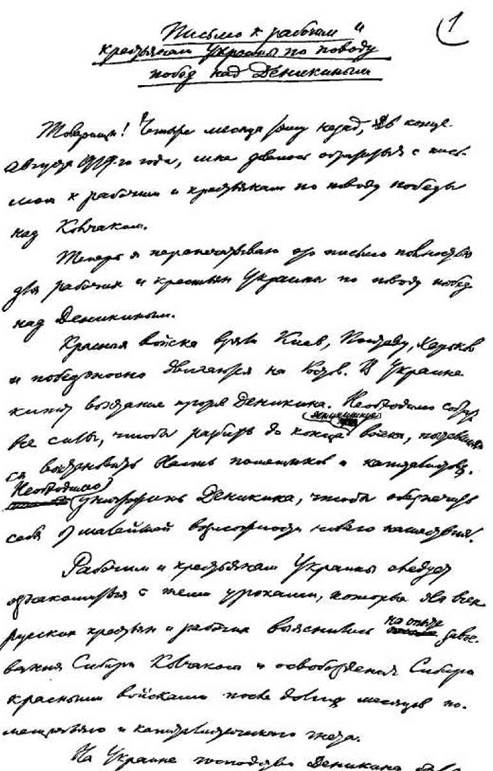 1
Письмо к рабочим и
крестьянам Украины по поводу
побед над Деникиным
Товарищи! Четыре месяца тому назад, в конце
августа 1919-го года, мне довелось обратиться с пись-
мом к рабочим и крестьянам по поводу победы
над Колчаком.
Теперь я перепечатываю это письмо полностью
для рабочих и крестьян Украины по поводу побед
над Деникиным.
Красные войска взяли Киев, Полтаву, Харьков
и победоносно двигаются на Ростов. В Украине
кипит восстание против Деникина. Необходимо собрать
все силы, чтобы разбить до конца деникинские войска, пытавшие
ся восстановить власть помещиков и капиталистов.
Необходимо уничтожить Деникина, чтобы обеспечить
себя от малейшей возможности нового нашествия.
Рабочим и крестьянам Украины следует
ознакомиться с теми уроками, которые для всех
русских крестьян и рабочих выяснились на опыте завое-
вания Сибири Колчаком и освобождения Сибири
красными войсками после долгих месяцев по-
мещичьего и капиталистического гнета.
На Украине господство Деникина было